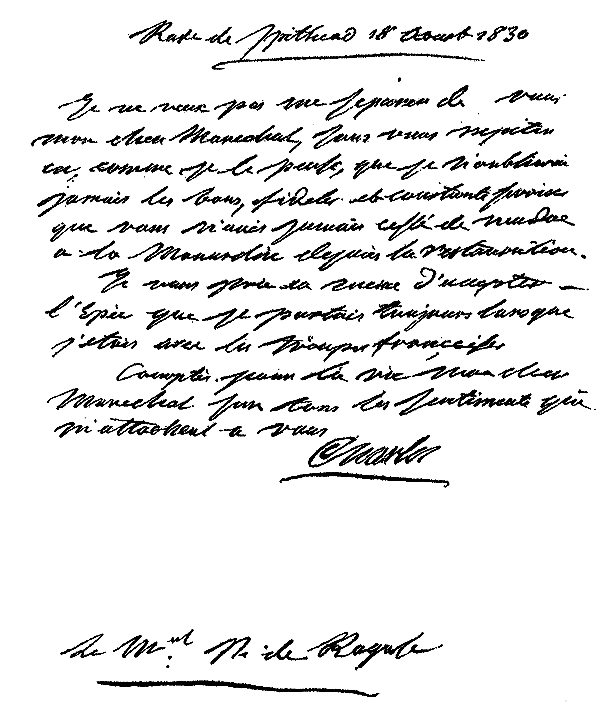 Rade de Spithead 18 Aoust 1830
Je ne veux pas me séparer de vous
mon cher Marechal, sans vous repeter
ce, comme je le pense, que je n'oublierai
jamais les bons, fideles et constants services
que vous n'avés jamais cessé de rendre
a la Monarchie depuis la restauration.
Je vous prie en meme d'accepter
l'Epée que je portois toujours lorsque
j'etois avec les troupes françaises
Comptés pour la vie, mon cher
Marechal sur tous les sentiments qui
m'attachent a vous
Charles
Le Mal de Raguse